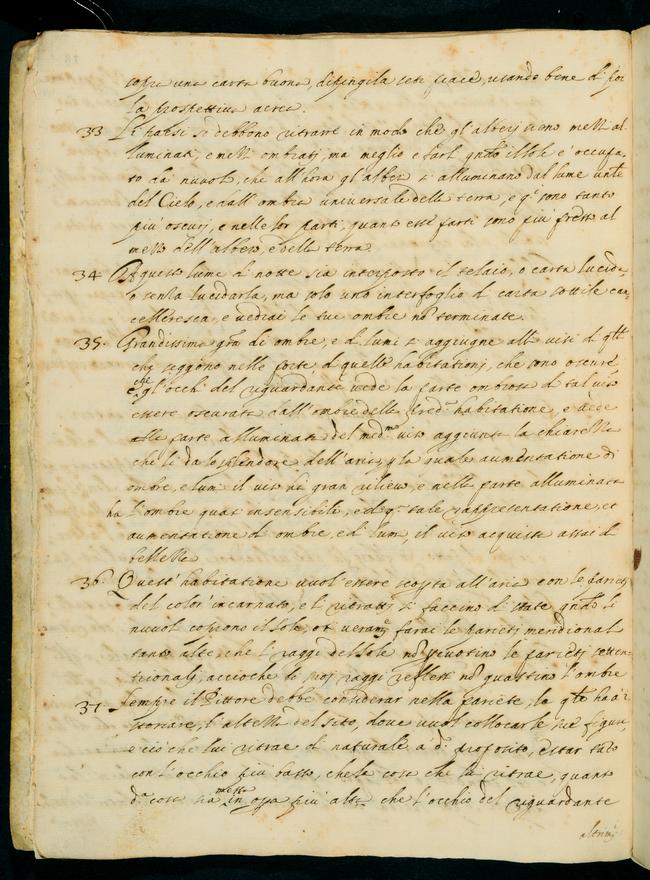 sopra una carta buona, dipingila senza fiace, usando bene di poi
la prospettiva aerea.
33 Li paesi si debbono ritrarre in modo che gl'alberi sieno mezzi al
luminati, e mezzi ombrati, ma meglio è farli quando il sole è occupa
to da nuvoli, che all'hora gl'alberi si alluminano dal lume unle
del Cielo, e dall'ombra universale della terra, e qti sono tanto
più oscuri, e nelle lor parti, quanto esse parti sono più presso al
mezzo dell'albero, e della terra.
34 A questo lume di notte sia interposto il telaio, o carta lucida,
o senza lucidarla, ma solo uno interfoglio di carta sottile can
celleresca, e vedrai le tue ombre nō terminate.
35. Grandissima grā di ombre, e di lumi s'aggiugne alli visi di qlli
che seggono nelle porte di quelle habitationi, che sono oscure
che gl'occhi del riguardante vede la parte ombrosa di tal viso
essere oscurata dall'ombre della pred. habitatione, e vede
alla parte alluminata del med.mo viso aggiunta la chiarezza
che li da lo splendore dell'aria, p la quale aumentatione di
ombre, e lumi il viso hà gran rilievo, e nella parte alluminata
ha l'ombre quasi insensibili, e di qta tale rappresentatione, et
aumentatione di ombre, e di lumi, il viso acquista assai di
bellezza.
36. Quest'habitatione vuol essere scoperta all'aria con le parieti
del color'incarnato, e li ritratti si faccino di state quando li
nuvoli coprono il sole, o veramte farai le parieti meridionali
tanto alte, che li raggi del sole nō percotino le parieti setten
trionali, accioche li suoi raggi reflessi nō guastino l'ombre
37. Sempre il Pittore debbe considerar nella pariete, la qle ha à i
storiare, l'altezza del sito, dove vuol collocar le sue figure,
e ciò che lui ritrae di naturale à d. proposito, e star tāto
con l'occhio più basso, che la cosa che lui ritrae, quanto
d. cosa sia messa in opa più alta che l'occhio del riguardante
altrimti